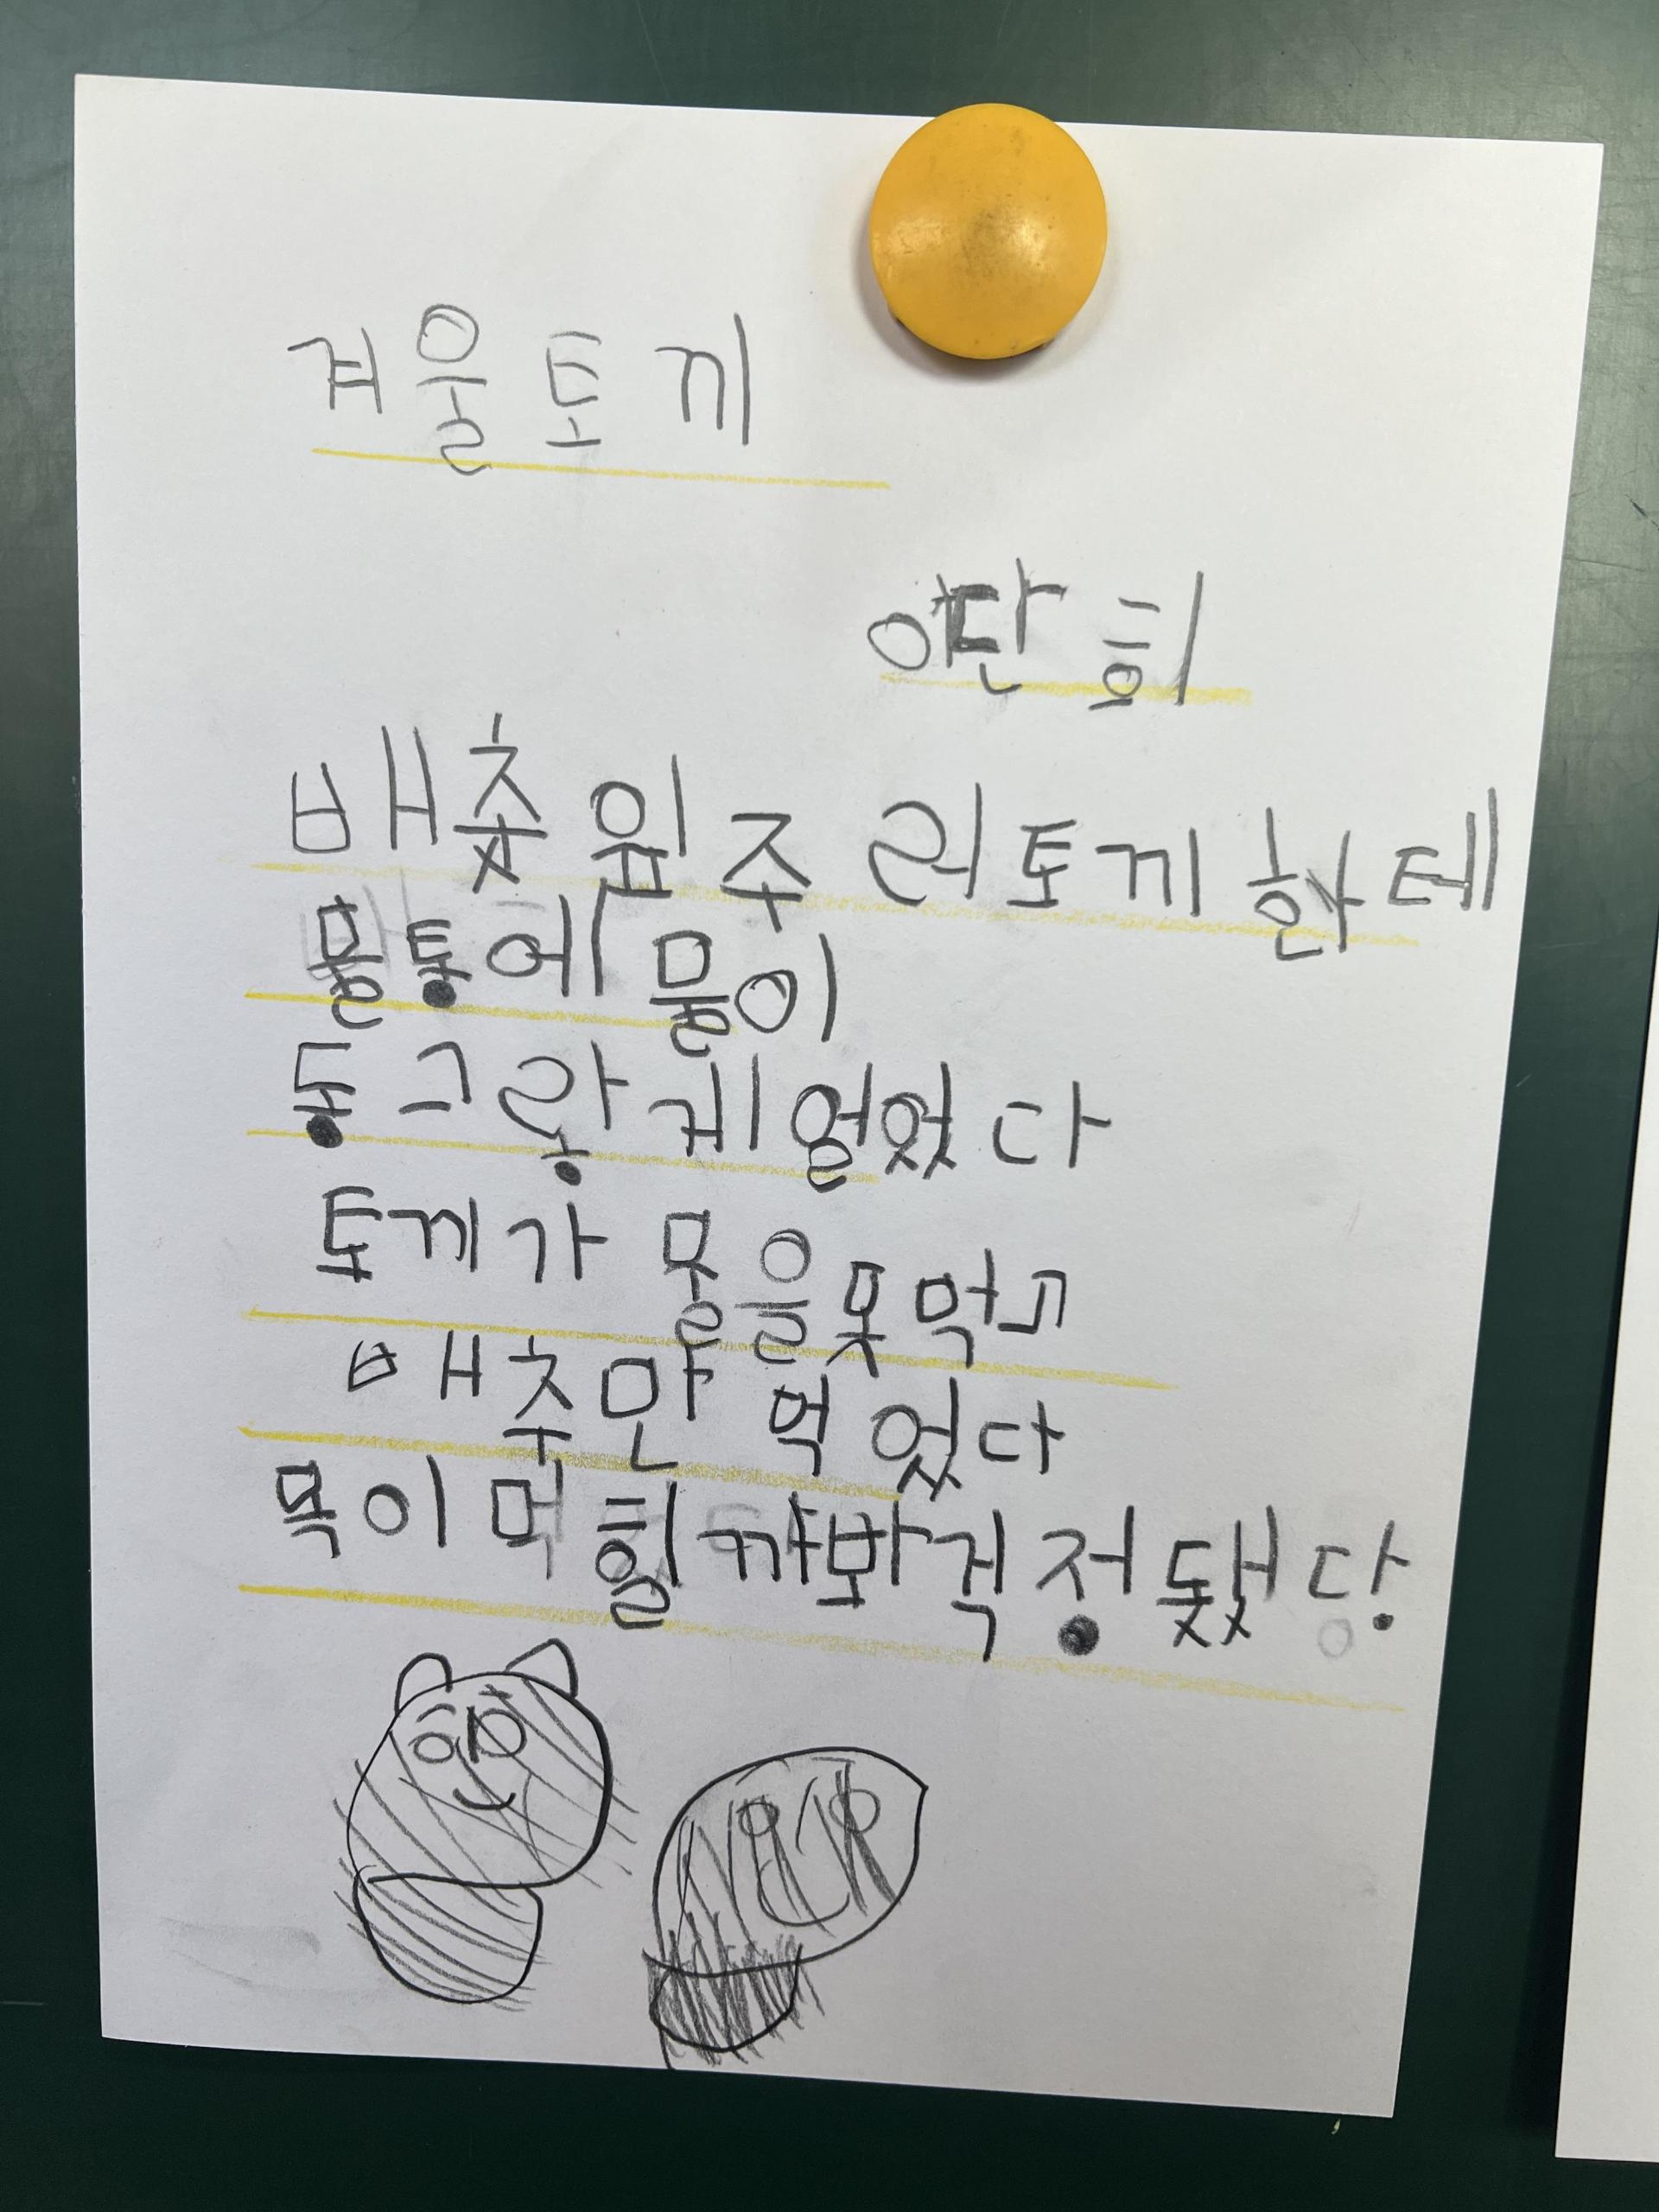 겨울토끼
배춧잎주러토끼한테
물통에물이
동그랗게얼었다
토끼가 물을못먹고
배추만 먹었다
목이먹힐까봐걱정됐당